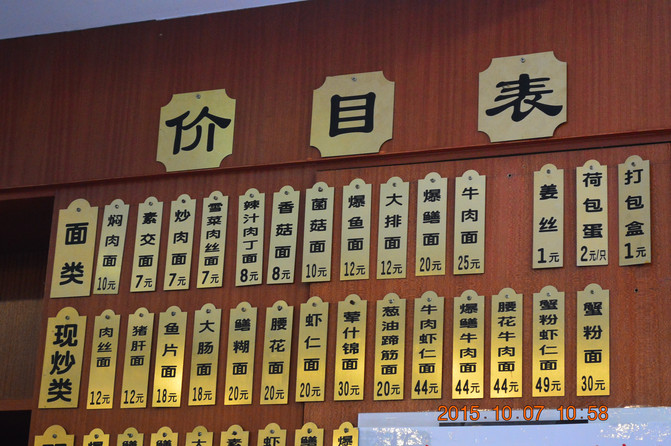 价目表
面类
焖肉面 10元
素交面 7元
炒肉面 7元
雪菜肉丝面 7元
辣汁肉丁面 8元
香菇面 8元
菌菇面 10元
爆鱼面 12元
大排面 12元
爆鳝面 20元
牛肉面 25元
姜丝 1元
荷包蛋 2元/只
打包盒 1元
现炒类
肉丝面 12元
猪肝面 12元
鱼片面 18元
大肠面 18元
鳝糊面 20元
腰花面 20元
虾仁面 20元
荤什锦面 30元
葱油蹄筋面 20元
牛肉虾仁面 44元
爆鳝牛肉面 44元
腰花牛肉面 44元
蟹粉虾仁面 49元
蟹粉面 30元
2015.10.07 10:58